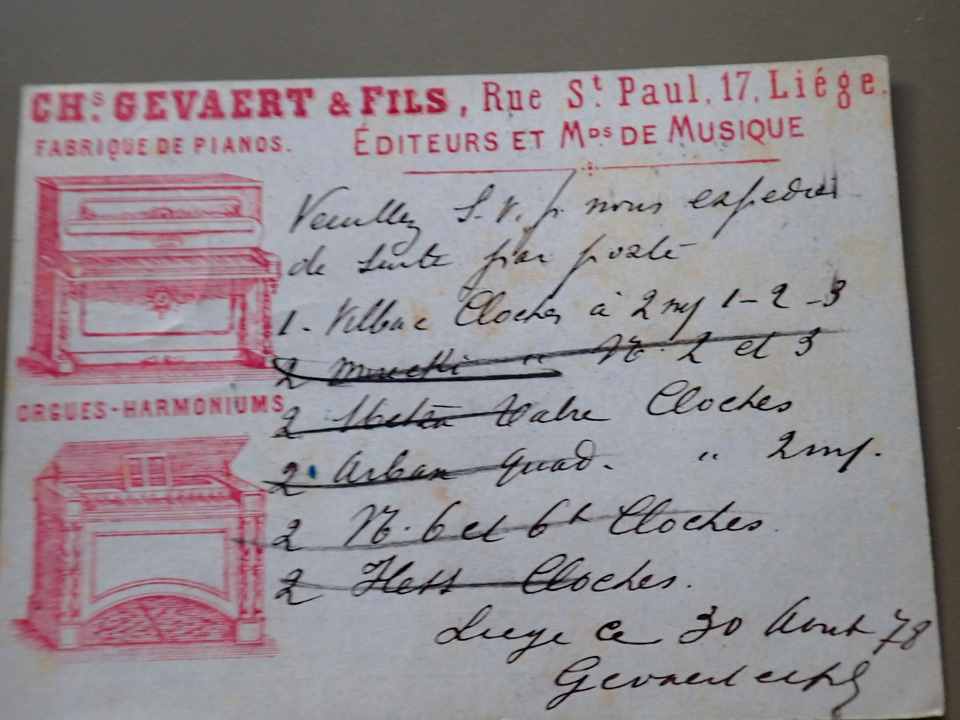 CHS. GEVAERT & FILS, Rue St. Paul, 17, Liége.
FABRIQUE DE PIANOS.
ÉDITEURS ET MDS. DE MUSIQUE
Veuillez S.V.p. nous expedier
de suite par poste
1 - Vilbac Cloches à 2 1 - 2 - 3
2 " N. 2 et 3
ORGUES-HARMONIUMS
2 Metra Valse Cloches
2 Arban Quad. " 2
2 N. 6 et 6 Cloches
2 Hess Cloches.
Liege ce 30 Aout 78
Gevaert